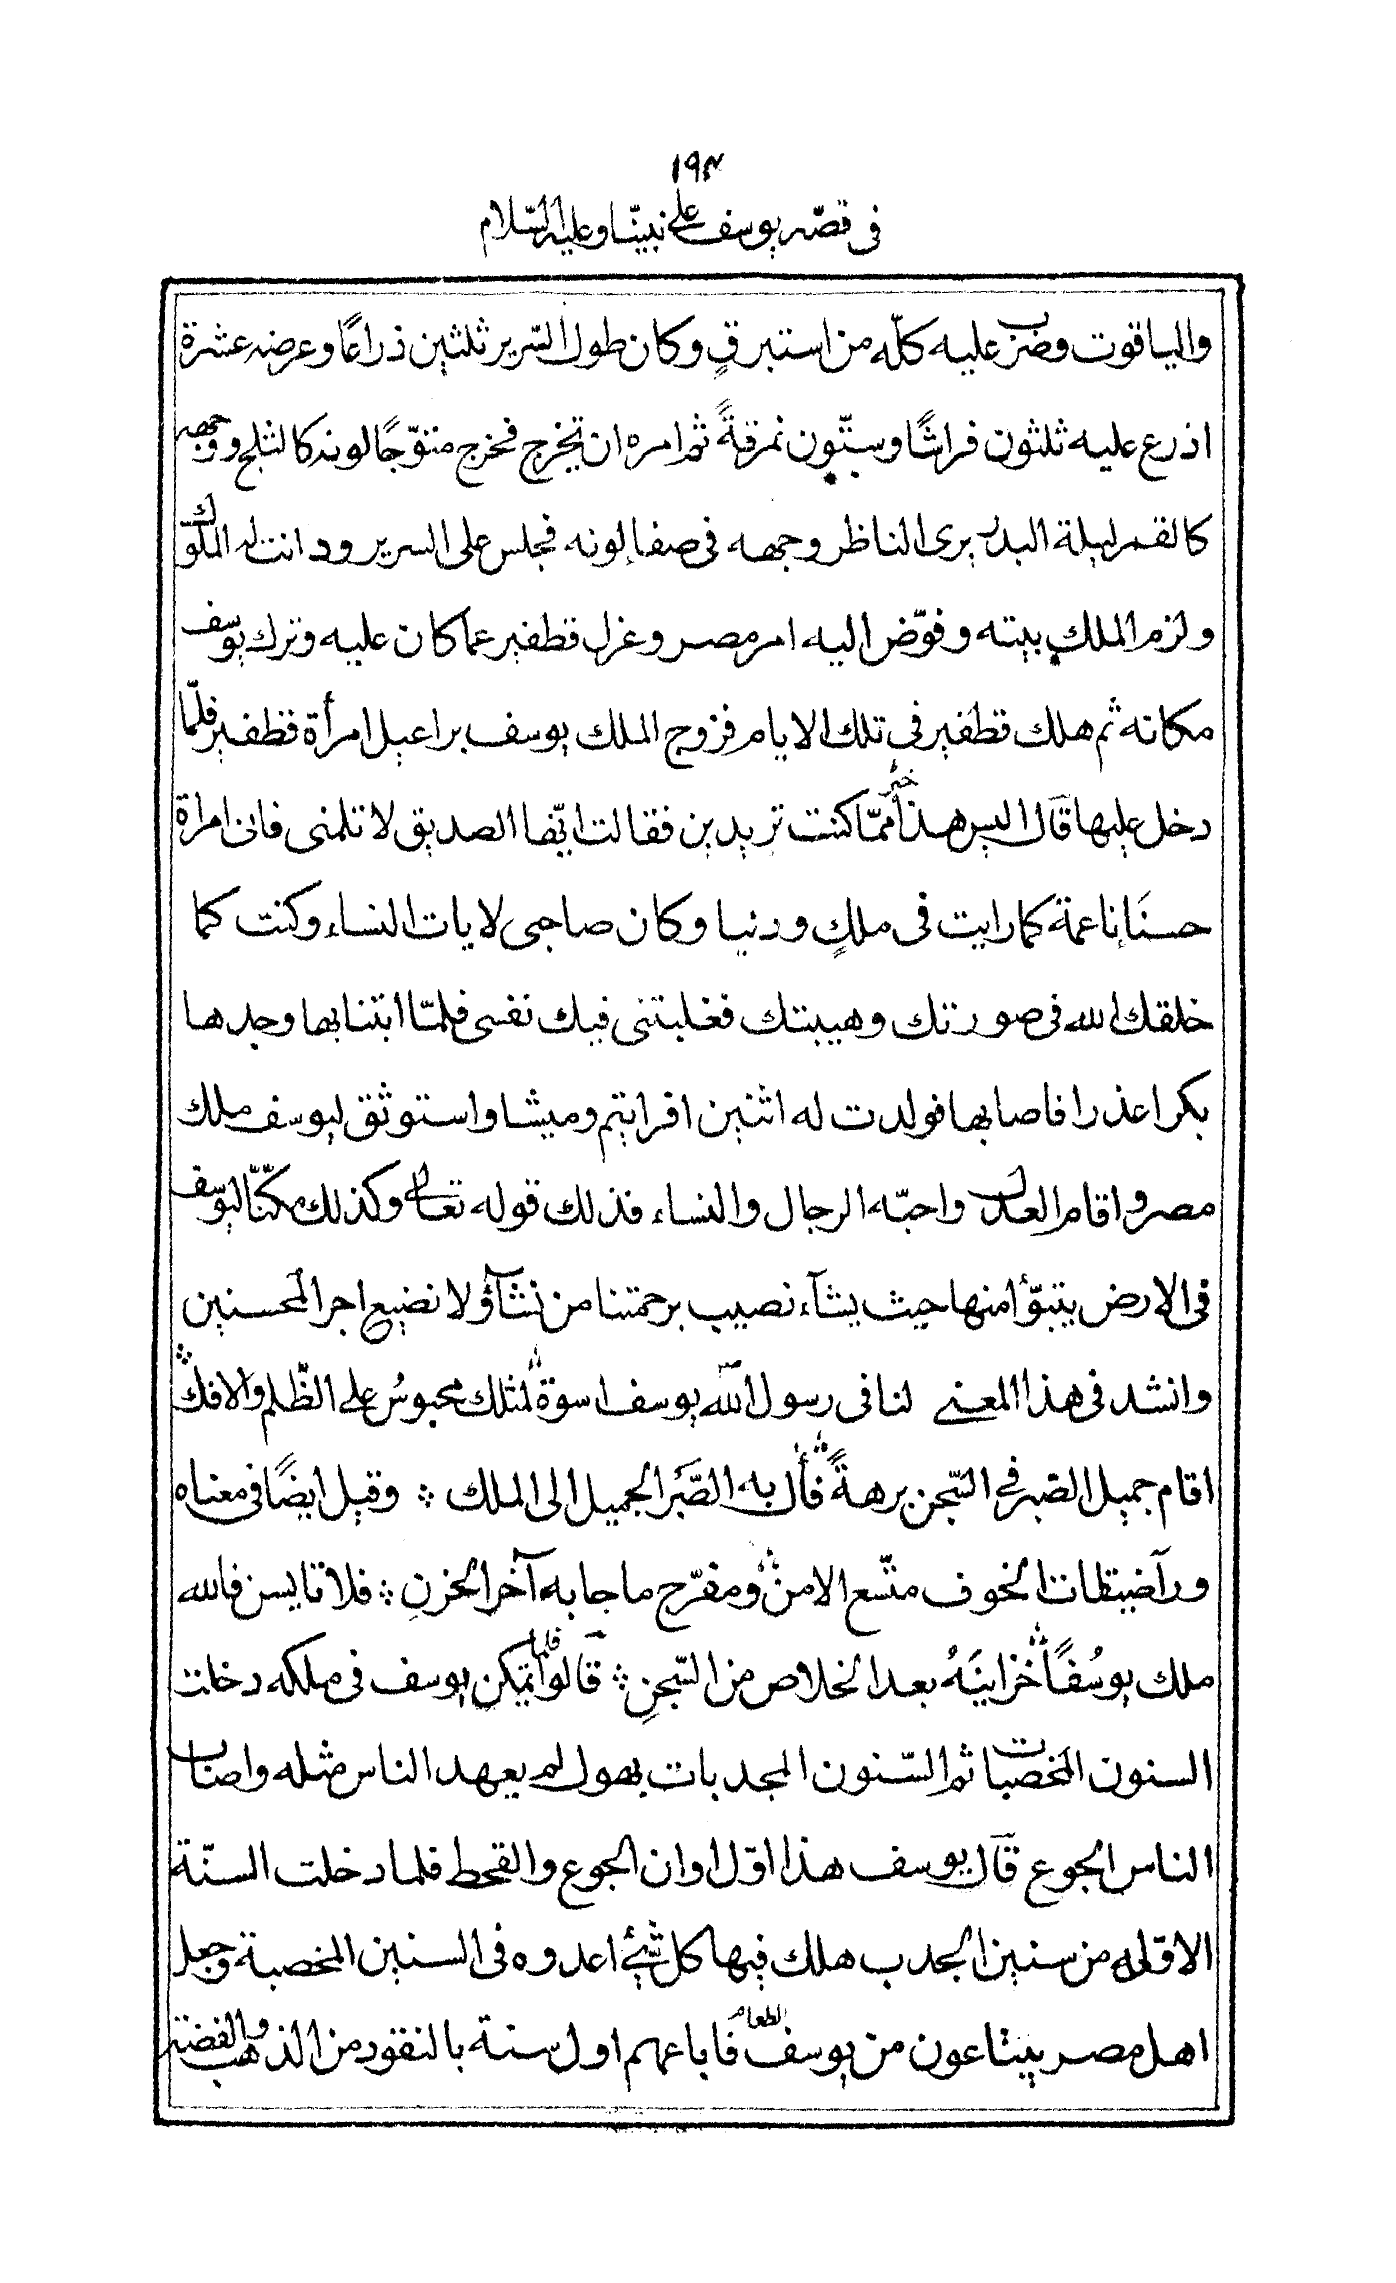 ١٩٣
فى قصّه يوسف على نبينّا وعليه السّلام
والياقوت وضرب عليه كلّه من استبرقٍ وكان طول السّرير ثلثين ذراعًا وعرضه عشرة
اذرع عليه ثلثون فراشًا وستّون نمرقةً ثم امره ان يخرج فخرج متوّجًا لونه كالثلج ووجهه
كالقمر ليلة البدر يرى الناظر وجهه فى صفاء لونه فجلس على السرير ودانت له الملوك
ولزم الملك بيته وفوّض اليه امر مصر وعزل قطفير عما كان عليه وترك يوسف
مكانه ثم هلك قطفير فى تلك الايام فزوج الملك يوسف براعيل امرأة قطفير فلمّا
دخل عليها قال اليس هذا خير ممّا كنت تريدين فقالت ايّها الصديق لا تلمنى فانى امراة
حسنَاء ناعمة كما رايت فى ملكٍ ودنيا وكان صاحبى لا يات النساء وكنت كما
خلقك الله فى صورتك وهيبتك فغلبتنى فيك نفسى فلمّا ابتنا بها وجدها
بكرا عذرا فاصابها فولدت له اثنين افرايتم وميشا واستوثق ليوسف ملك
مصر واقام العدل واحبّه الرجال والنساء فذلك قوله تعالى وكذلك مكنّا ليوسف
فى الارض يتبوّأ منها حيث يشآء نصيب برحمتنا من نشآء ولا نضيع اجر المحسنين
وانشد فى هذا المعنى لنا فى رسول الله يوسف اسوة لمثلك محبوسُ على الظّلم والافك
اقام جميل الصّبر فى السّجن برهةً فأل به الصّبَر الجميل الى الملك وقيل ايضًا فى معناه
ورآ ضيقات الخوف متّسع الامن ومفرّح ما جا به آخر الحزن فلا تايسن فالله
ملك يوسُفًا خزاينَهُ بعد الخلاص من السّجنِ قالوا فلما تمكن يوسف فى ملكه دخلت
السنون المخصبات ثم السّنون المجدبات بهول لم يعهد الناس مثله واصاب
الناس الجوع قال يوسف هذا اوّل اوان الجوع والقحط فلما دخلت السنّة
الاوّلى من سنين الجدب هلك فيها كل شئ اعدوه فى السنين المخصبة وجعل
اهل مصر يبتاعون من يوسف الطعام فاباعهم اول سنة بالنقود من الذهب والفضّة